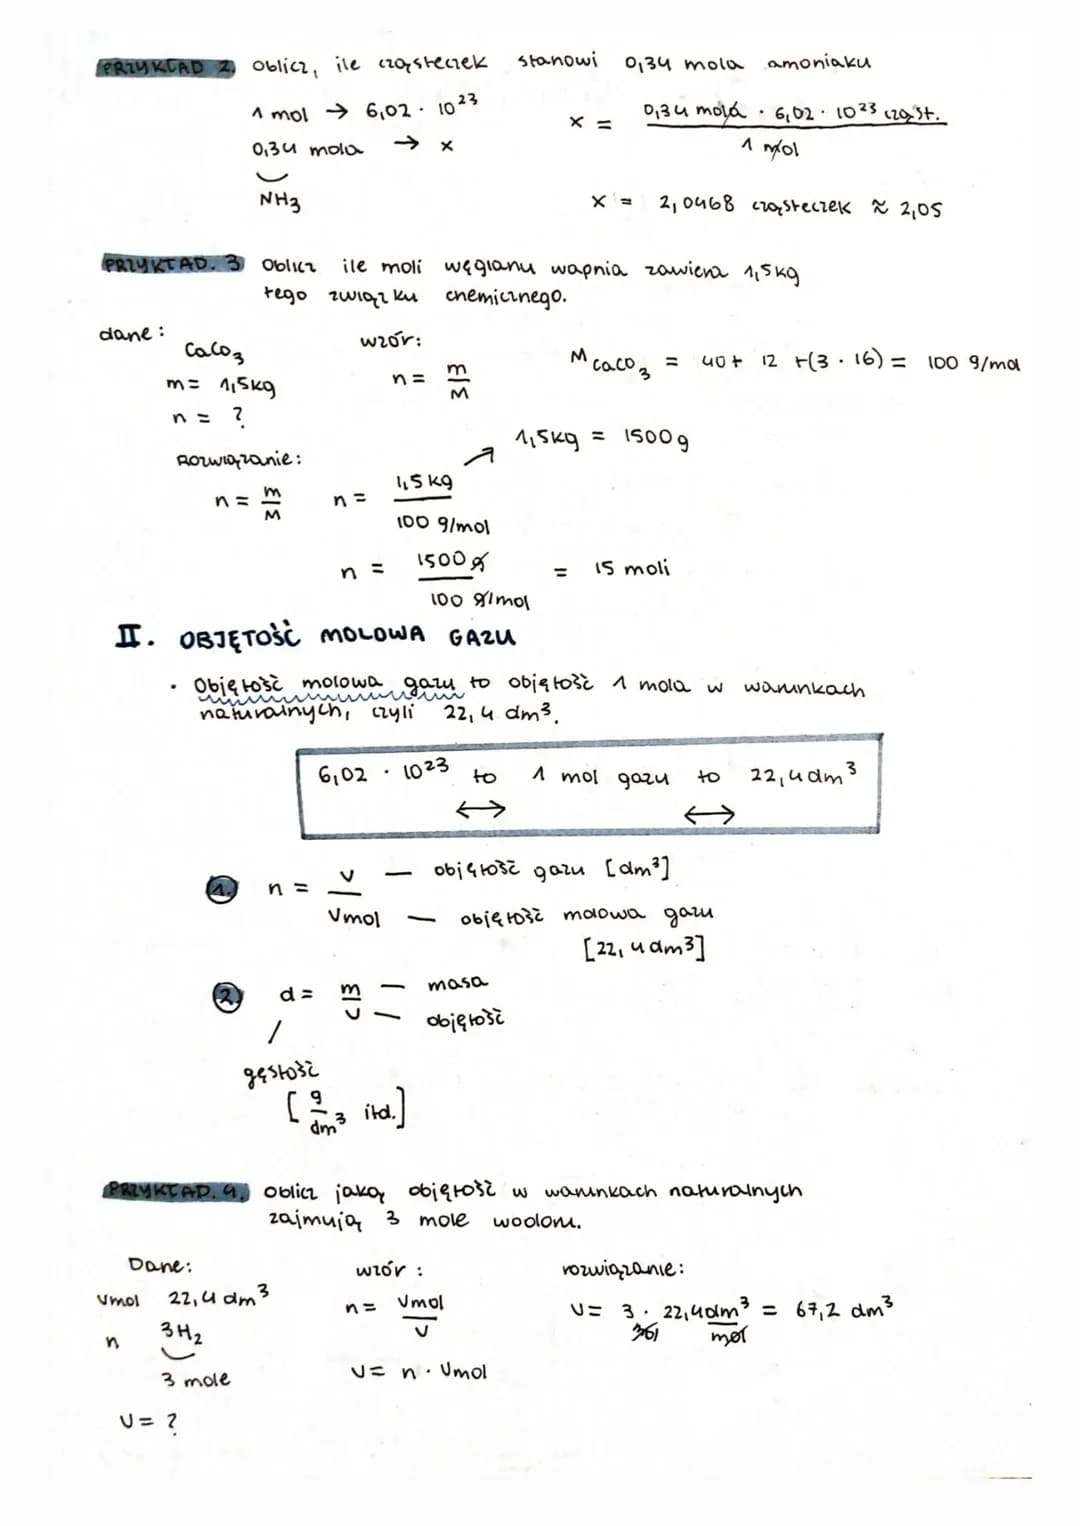 PRZYKŁAD 2. Oblicz, ile cząsteczek stanowi 0,34 mola amoniaku
1 mol → 6,02 · 10²³
0,34 mola → x
NH₃
x = 0,34 mola · 6,02 · 10²³ cząst. / 1 mol
x = 2,0468 cząsteczek ≈ 2,05
PRZYKŁAD. 3 Oblicz ile moli węglanu wapnia zawiera 1,5kg
tego związku chemicznego.
dane:
CaCO₃
m = 1,5kg
n = ?
wzór:
n = m/M
M CaCO₃ = 40 + 12 + (3 · 16) = 100 g/mol
Rozwiązanie:
1,5kg = 1500g
n = m/M n = 1,5 kg / 100 g/mol
n = 1500 g / 100 g/mol = 15 moli
II. OBJĘTOŚĆ MOLOWA GAZU
• Objętość molowa gazu to objętość 1 mola w warunkach
naturalnych, czyli 22,4 dm³.
6,02 · 10²³ to 1 mol gazu to 22,4 dm³
↔ ↔
1. n = V — objętość gazu [dm³]
Vmol — objętość molowa gazu
[22,4 dm³]
2. d = m — masa
V — objętość
gęstość
[g/dm³ itd.]
PRZYKŁAD. 4. Oblicz jaką objętość w warunkach naturalnych
zajmują 3 mole wodoru.
Dane:
Vmol 22,4 dm³
n 3H₂
3 mole
V = ?
wzór:
n = Vmol/V
V = n · Vmol
rozwiązanie:
V = 3 · 22,4dm³/mol = 67,2 dm³